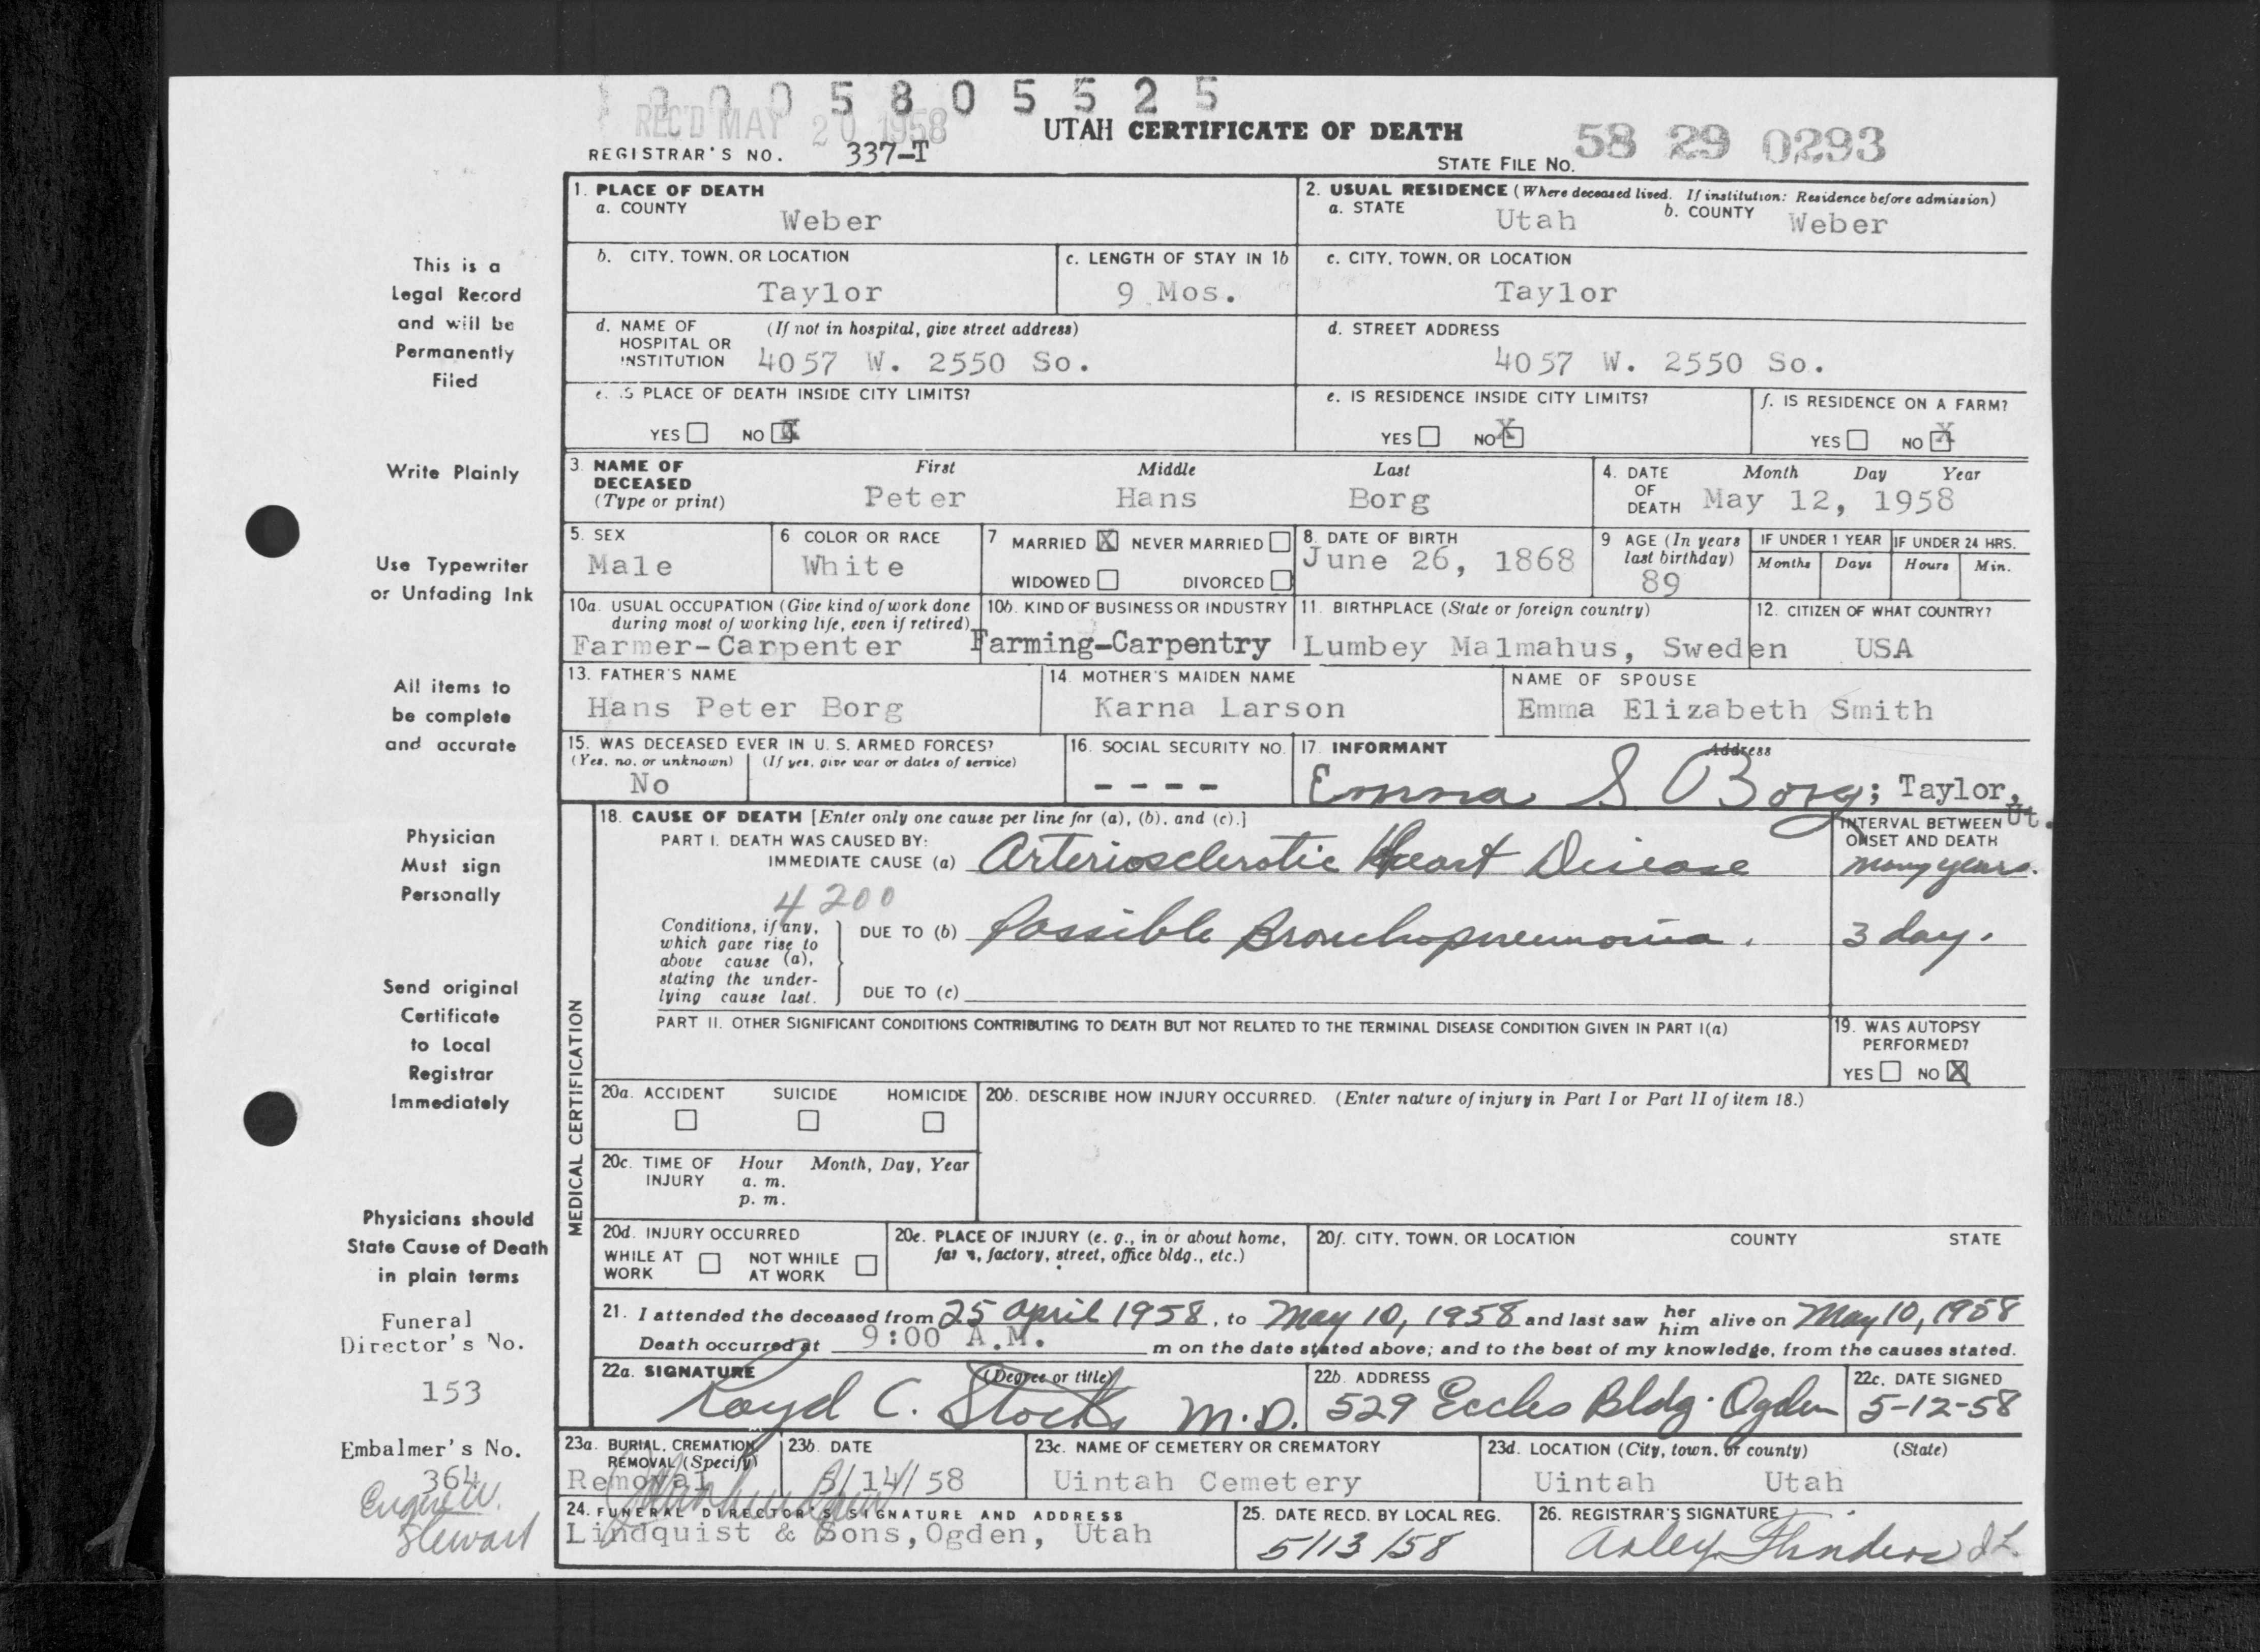 0005805525
REC'D MAY 20 1958
UTAH CERTIFICATE OF DEATH
REGISTRAR'S NO. 337-T
STATE FILE NO. 58 29 0293
1. PLACE OF DEATH
a. COUNTY
Weber
2. USUAL RESIDENCE (Where deceased lived. If institution: Residence before admission)
a. STATE Utah b. COUNTY Weber
b. CITY, TOWN, OR LOCATION
Taylor
c. LENGTH OF STAY IN 1b
9 Mos.
c. CITY, TOWN, OR LOCATION
Taylor
d. NAME OF HOSPITAL OR INSTITUTION (If not in hospital, give street address)
4057 W. 2550 So.
d. STREET ADDRESS
4057 W. 2550 So.
e. IS PLACE OF DEATH INSIDE CITY LIMITS?
YES NO X
e. IS RESIDENCE INSIDE CITY LIMITS?
YES NO X
f. IS RESIDENCE ON A FARM?
YES NO X
3. NAME OF DECEASED (Type or print)
First Middle Last
Peter Hans Borg
4. DATE OF DEATH Month Day Year
May 12, 1958
5. SEX
Male
6 COLOR OR RACE
White
7 MARRIED X NEVER MARRIED
WIDOWED DIVORCED
8. DATE OF BIRTH
June 26, 1868
9 AGE (In years last birthday)
89
IF UNDER 1 YEAR
Months Days
IF UNDER 24 HRS.
Hours Min.
10a. USUAL OCCUPATION (Give kind of work done during most of working life, even if retired)
Farmer-Carpenter
10b. KIND OF BUSINESS OR INDUSTRY
Farming-Carpentry
11. BIRTHPLACE (State or foreign country)
Lumbey Malmahus, Sweden
12. CITIZEN OF WHAT COUNTRY?
USA
13. FATHER'S NAME
Hans Peter Borg
14. MOTHER'S MAIDEN NAME
Karna Larson
NAME OF SPOUSE
Emma Elizabeth Smith
15. WAS DECEASED EVER IN U. S. ARMED FORCES?
(Yes, no, or unknown) (If yes, give war or dates of service)
No
16. SOCIAL SECURITY NO.
----
17. INFORMANT Address
Emma S Borg; Taylor, Ut.
MEDICAL CERTIFICATION
18. CAUSE OF DEATH [Enter only one cause per line for (a), (b), and (c).]
PART I. DEATH WAS CAUSED BY:
IMMEDIATE CAUSE (a) Arteriosclerotic Heart Disease
INTERVAL BETWEEN ONSET AND DEATH
many years.
4200
Conditions, if any, which gave rise to above cause (a), stating the underlying cause last.
DUE TO (b) Possible Bronchopneumonia. 3 day.
DUE TO (c)
PART II. OTHER SIGNIFICANT CONDITIONS CONTRIBUTING TO DEATH BUT NOT RELATED TO THE TERMINAL DISEASE CONDITION GIVEN IN PART I(a)
19. WAS AUTOPSY PERFORMED?
YES NO X
20a. ACCIDENT SUICIDE HOMICIDE
20b. DESCRIBE HOW INJURY OCCURRED. (Enter nature of injury in Part I or Part II of item 18.)
20c. TIME OF INJURY Hour Month, Day, Year
a. m.
p. m.
20d. INJURY OCCURRED
WHILE AT WORK NOT WHILE AT WORK
20e. PLACE OF INJURY (e. g., in or about home, farm, factory, street, office bldg., etc.)
20f. CITY, TOWN, OR LOCATION COUNTY STATE
21. I attended the deceased from 25 April 1958, to May 10, 1958 and last saw her him alive on May 10, 1958
Death occurred at 9:00 A.M. m on the date stated above; and to the best of my knowledge, from the causes stated.
22a. SIGNATURE (Degree or title)
Loyd C. Stocks M.D.
22b. ADDRESS
529 Eccles Bldg. Ogden
22c. DATE SIGNED
5-12-58
23a. BURIAL, CREMATION, REMOVAL (Specify)
Removal
23b. DATE
5/14/58
23c. NAME OF CEMETERY OR CREMATORY
Uintah Cemetery
23d. LOCATION (City, town, or county) (State)
Uintah Utah
24. FUNERAL DIRECTOR'S SIGNATURE AND ADDRESS
Lindquist & Sons, Ogden, Utah
25. DATE RECD. BY LOCAL REG.
5/13/58
26. REGISTRAR'S SIGNATURE
Arley Flinders
This is a
Legal Record
and will be
Permanently
Filed
Write Plainly
Use Typewriter
or Unfading Ink
All items to
be complete
and accurate
Physician
Must sign
Personally
Send original
Certificate
to Local
Registrar
Immediately
Physicians should
State Cause of Death
in plain terms
Funeral
Director's No.
153
Embalmer's No.
364
Stewart